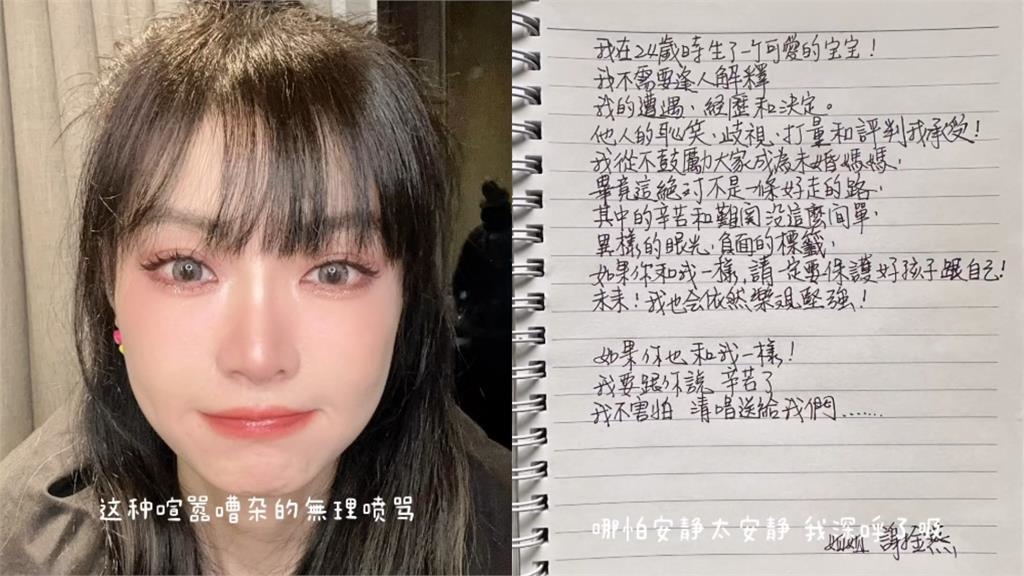 这种喧嚣嘈杂的無理喷骂
我在24歲時生了一个可愛的宝宝!
我不需要逢人解釋
我的遭遇、經歷和決定。
他人的恥笑、歧視、打量和評判我承受!
我從不鼓勵大家成為未婚媽媽,
畢竟這絕对不是一條好走的路,
其中的辛苦和難関沒這麼间單,
異樣的眼光、負面的標籤,
如果你和我一樣,請一定要保護好孩子跟自己!
未來!我也会依然樂观堅强!
如果你也和我一樣!
我要跟你説 辛苦了
我不害怕 清唱送給我們......
哪怕安静太安静 我深呼了
謝金燕